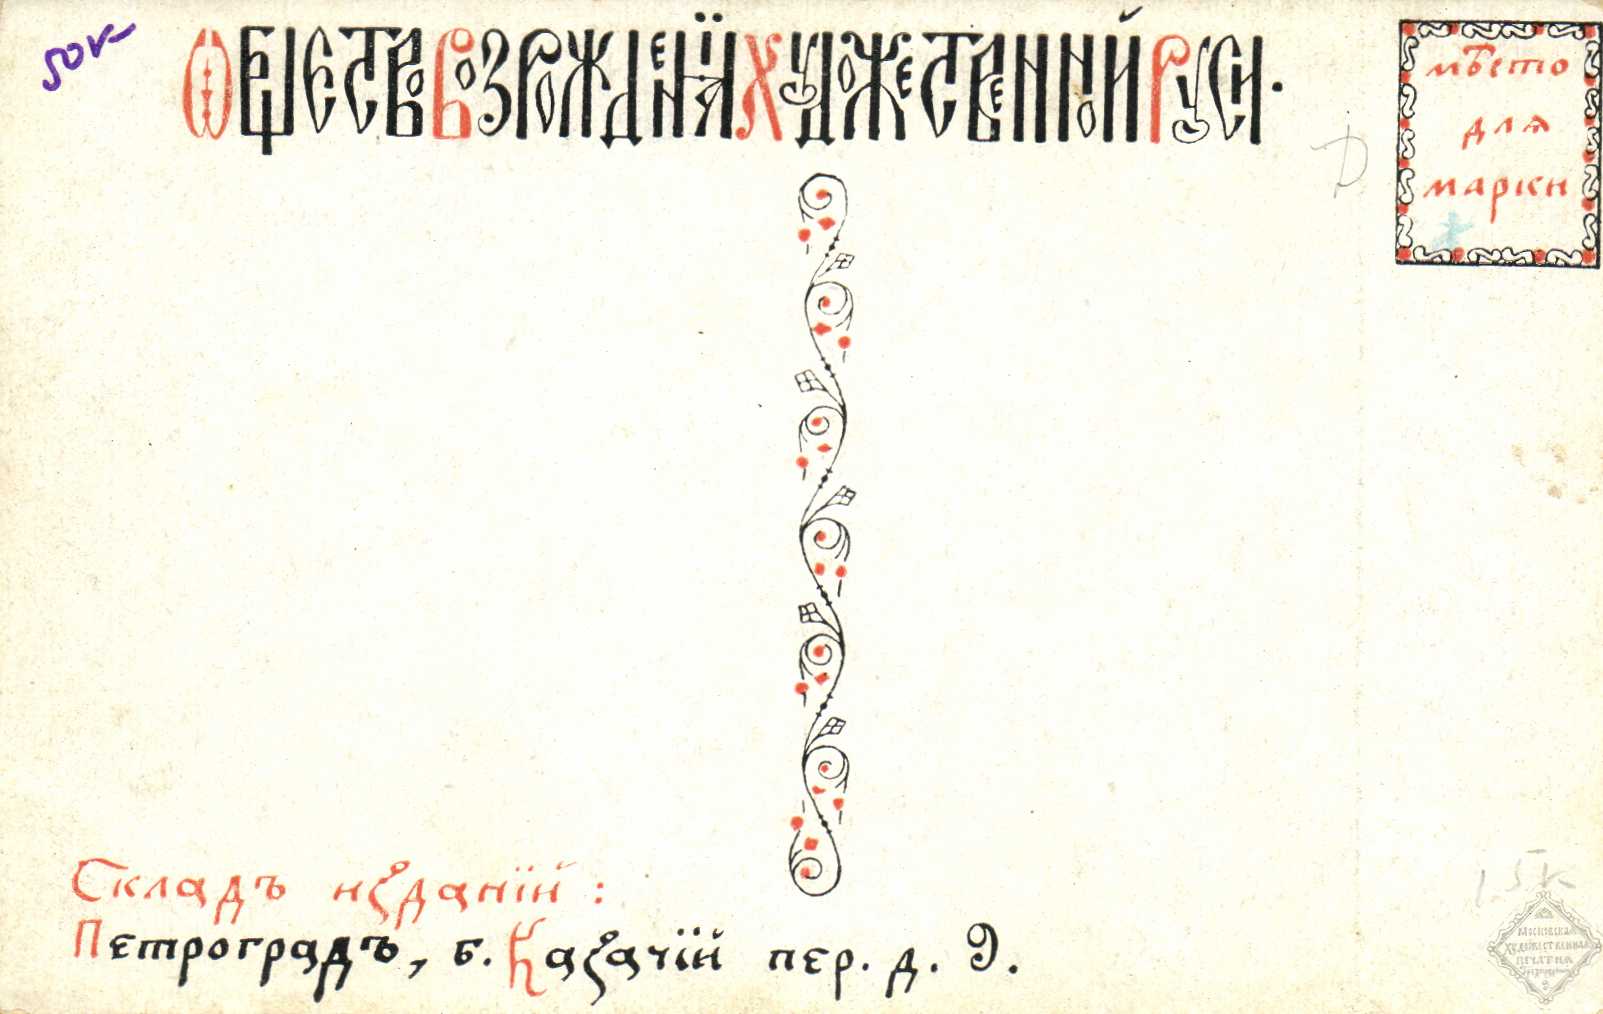 50к
Общество Возрожденія Художественной Руси.
мѣсто
для
марки
Складъ изданій:
Петроградъ, б. Казачій пер. д. 9.
15к
Московская
Художественная
Печатня